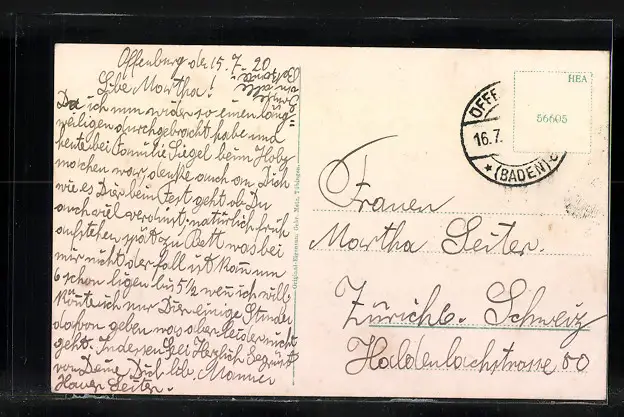 Offenburg den 15. 7. 20
Liebe Martha!
Da ich nun wider so einen lang=
weiligen durchgebracht habe und
heute bei Familie Siegel beim Holz
machen war, denke auch an Dich
wie es Dir beim Fest geht ob Du
auch viel versäumst, natürlich früh
aufstehen spät zu Bett was bei
mir nicht der Fall ist kann um
6 schon ligen bis 5½ wen ich will
könte ich nur Dir einige Stunden
davon geben was aber leider nicht
geht. Indessen sei Herzlich Gegrüßt
von Deine Dich lib. Manne
Seiter.
Frauen
Martha Seiter.
Zürich 6. Schweiz
Haldenbachstrasse 60
OFFE
16.7.
*(BADEN)
HEA
56605
Gebr. Metz, Tübingen.